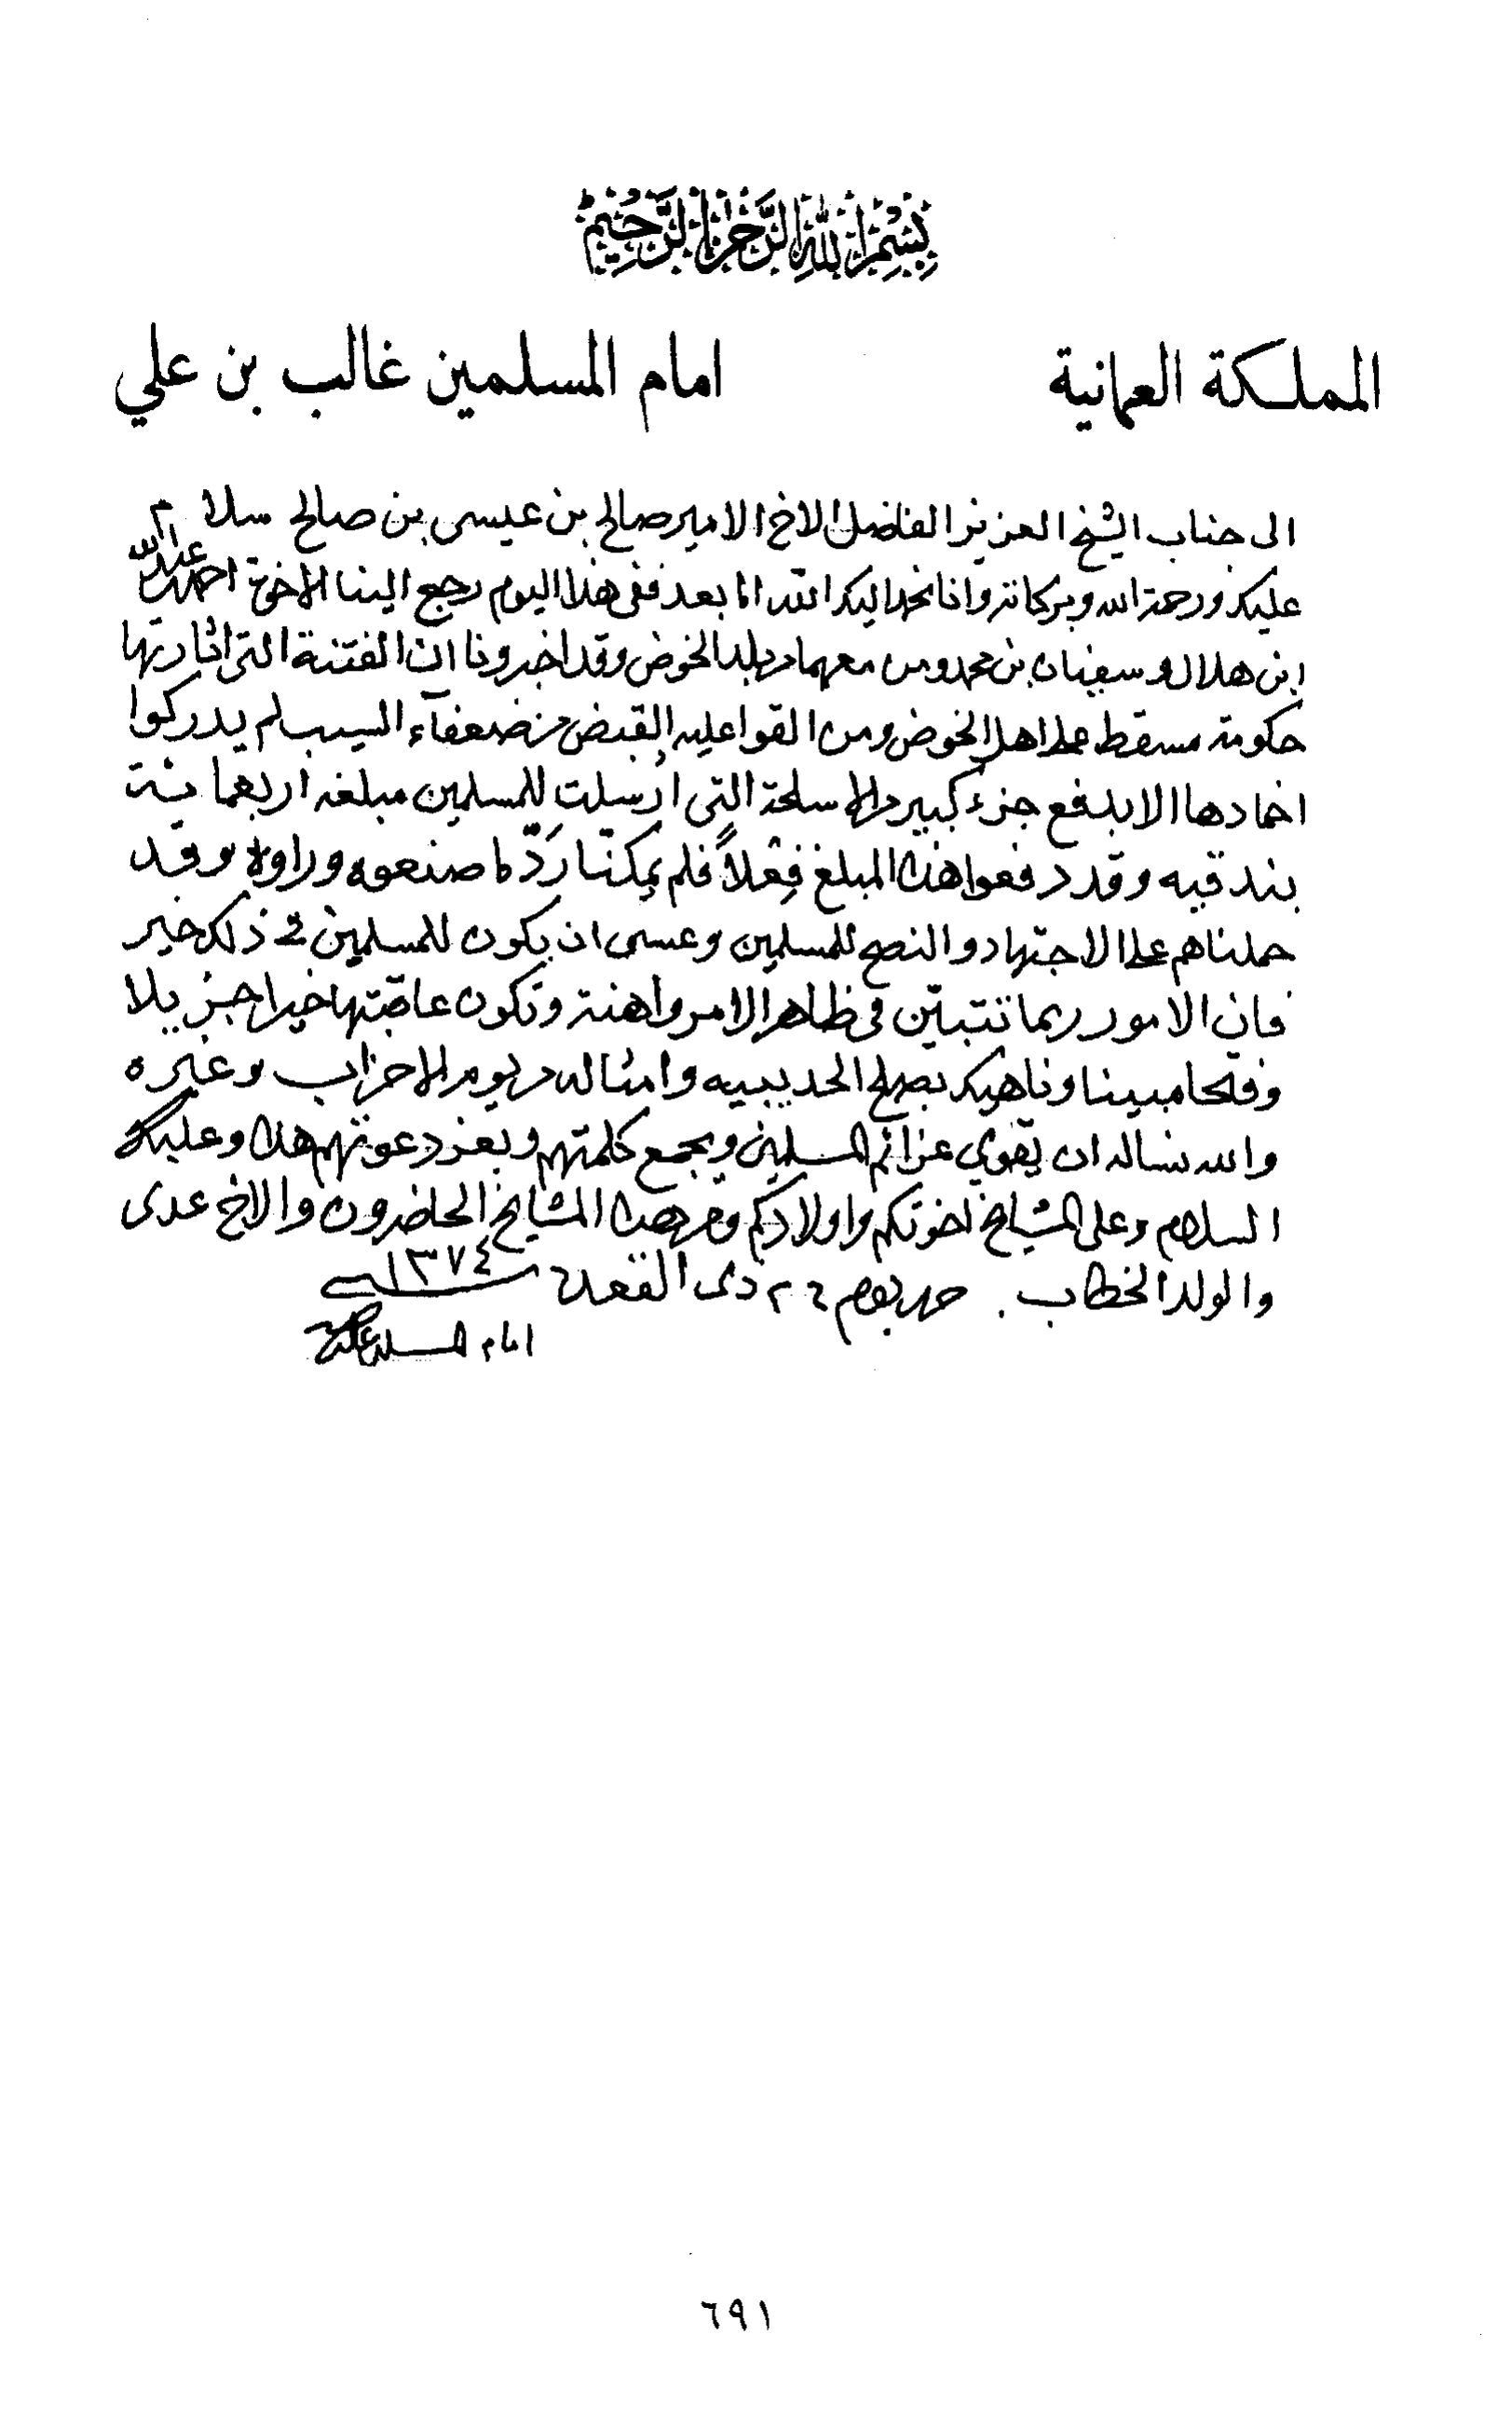 بسم الله الرحمن الرحيم
المملكة العمانية
امام المسلمين غالب بن علي
الى جناب الشيخ العزيز الفاضل الاخ الامير صالح بن عيسى بن صالح سلام
عليكم ورحمة الله وبركاته وانا نحمد اليكم الله اما بعد ففى هذا اليوم رجع الينا الاخوة احمد عبدالله
ابن هلال و سفيان بن محمد ومن معهما من بلد الخوض وقد اخبرونا ان الفتنة التى اثارتها
حكومة مسقط على اهل الخوض ومن القوا عليه القبض من ضعفآء السيب لم يدركوا
اخمادها الا بدفع جزء كبير من الاسلحة التى ارسلت للمسلمين مبلغه اربعمائة
بندقيه وقد دفعوا هذا المبلغ فعلاً فلم يمكنّا ردّ ما صنعوه وراوه وقد
حملناهم على الاجتهاد و النصح للمسلمين وعسى ان يكون للمسلمين في ذلك خير
فان الامور ربما تتبيّن فى ظاهر الامر واهنة وتكون عاقبتها خيرا جزيلا
وفتحا مبينا وناهيك بصلح الحديبيه وامثاله من يوم الاحزاب وغيره
والله نساله ان يقوي عزائم المسلمين ويجمع كلمتهم ويعز دعوتهم هذا وعليكم
السلام وعلى المشايخ اخوتكم واولادكم ومن هنا المشايخ الحاضرون والاخ عدى
والولد الخطاب. حرر يوم ٢٦ ذى القعدة ١٣٧٤
امام المسلمين غالب
٦٩١